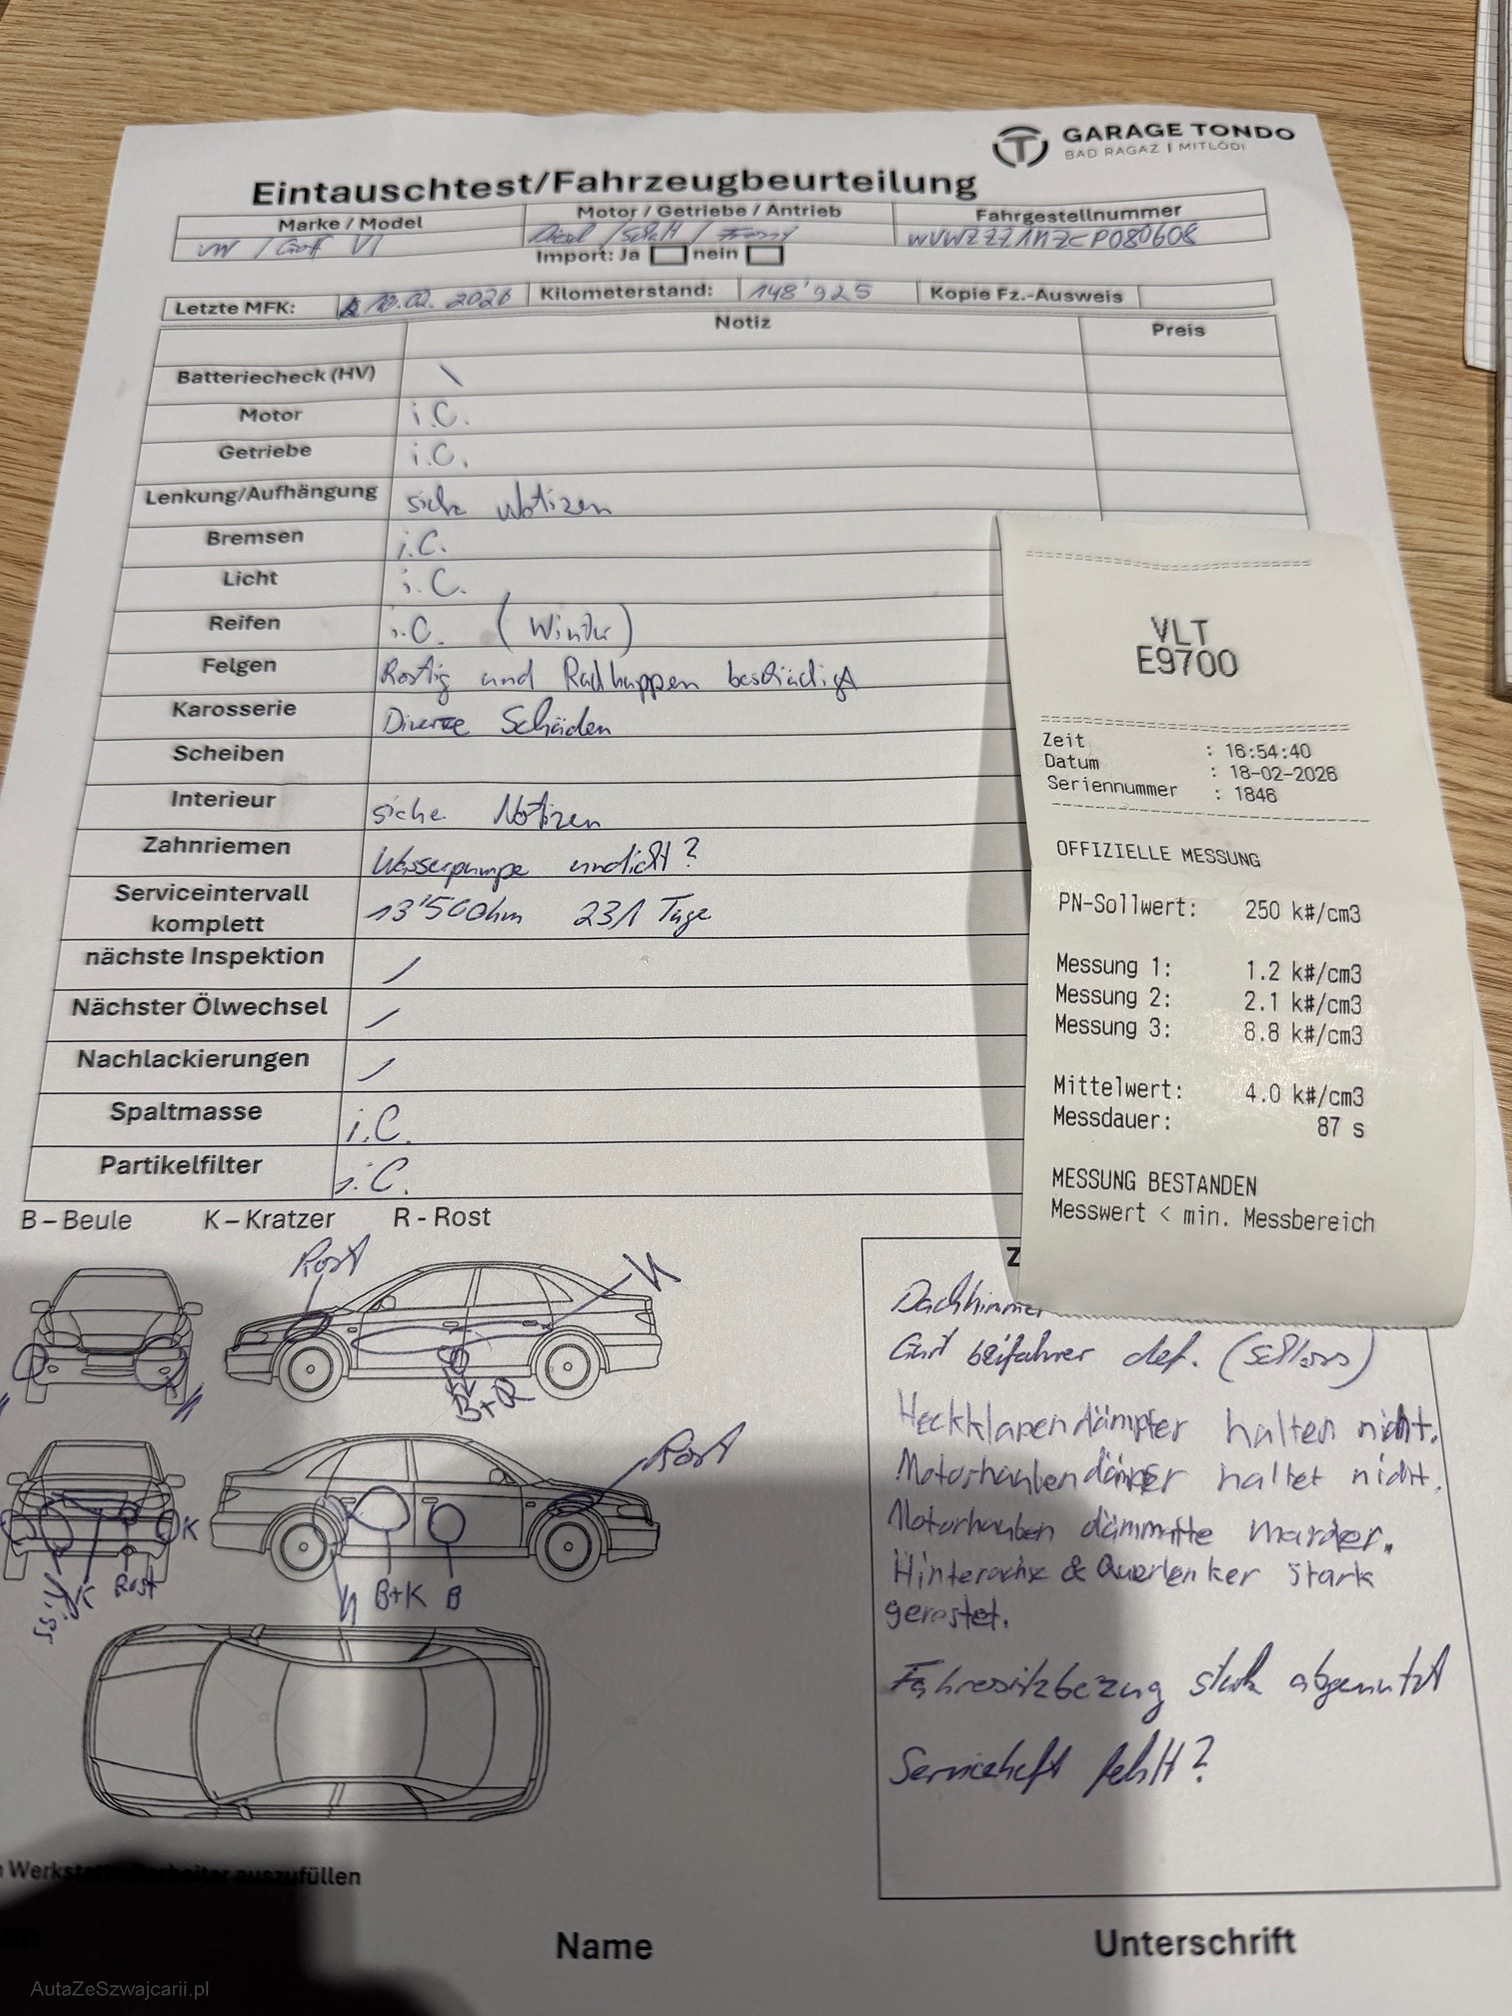 GARAGE TONDO
BAD RAGAZ | MITLÖDI
Eintauschtest/Fahrzeugbeurteilung
Marke / Model
Motor / Getriebe / Antrieb
Fahrgestellnummer
VW / Golf VI
Diesel / Schalt / Front
WVWZZZ1KZCP080608
Import: Ja nein
Letzte MFK: 10.02.2026
Kilometerstand: 148'925
Kopie Fz.-Ausweis
Notiz
Preis
Batteriecheck (HV) \
Motor i.O.
Getriebe i.O.
Lenkung/Aufhängung siehe Notizen
Bremsen i.O.
Licht i.O.
Reifen i.O. (Winter)
Felgen Rostig und Radkappen beschädigt
Karosserie Diverse Schäden
Scheiben
Interieur siehe Notizen
Zahnriemen Wasserpumpe undicht?
Serviceintervall komplett 13'500km 231 Tage
nächste Inspektion /
Nächster Ölwechsel /
Nachlackierungen /
Spaltmasse i.O.
Partikelfilter i.O.
B – Beule K – Kratzer R - Rost
VLT
E9700
Zeit : 16:54:40
Datum : 18-02-2026
Seriennummer : 1846
OFFIZIELLE MESSUNG
PN-Sollwert: 250 k#/cm3
Messung 1: 1.2 k#/cm3
Messung 2: 2.1 k#/cm3
Messung 3: 8.8 k#/cm3
Mittelwert: 4.0 k#/cm3
Messdauer: 87 s
MESSUNG BESTANDEN
Messwert < min. Messbereich
Rost
K
B+R
Rost
K
Riss
K
Rost
K
B+K
B
Z
Dachhimmel
Gurt beifahrer def. (Schloss)
Heckklapendämpfer halten nicht.
Motorhaubendämpfer haltet nicht.
Motorhauben dämmatte Marder.
Hinterachse & Querlenker stark
gerostet.
Fahrersitzbezug stark abgenutzt
Serviceheft fehlt?
auszufüllen
Name
Unterschrift
AutaZeSzwajcarii.pl